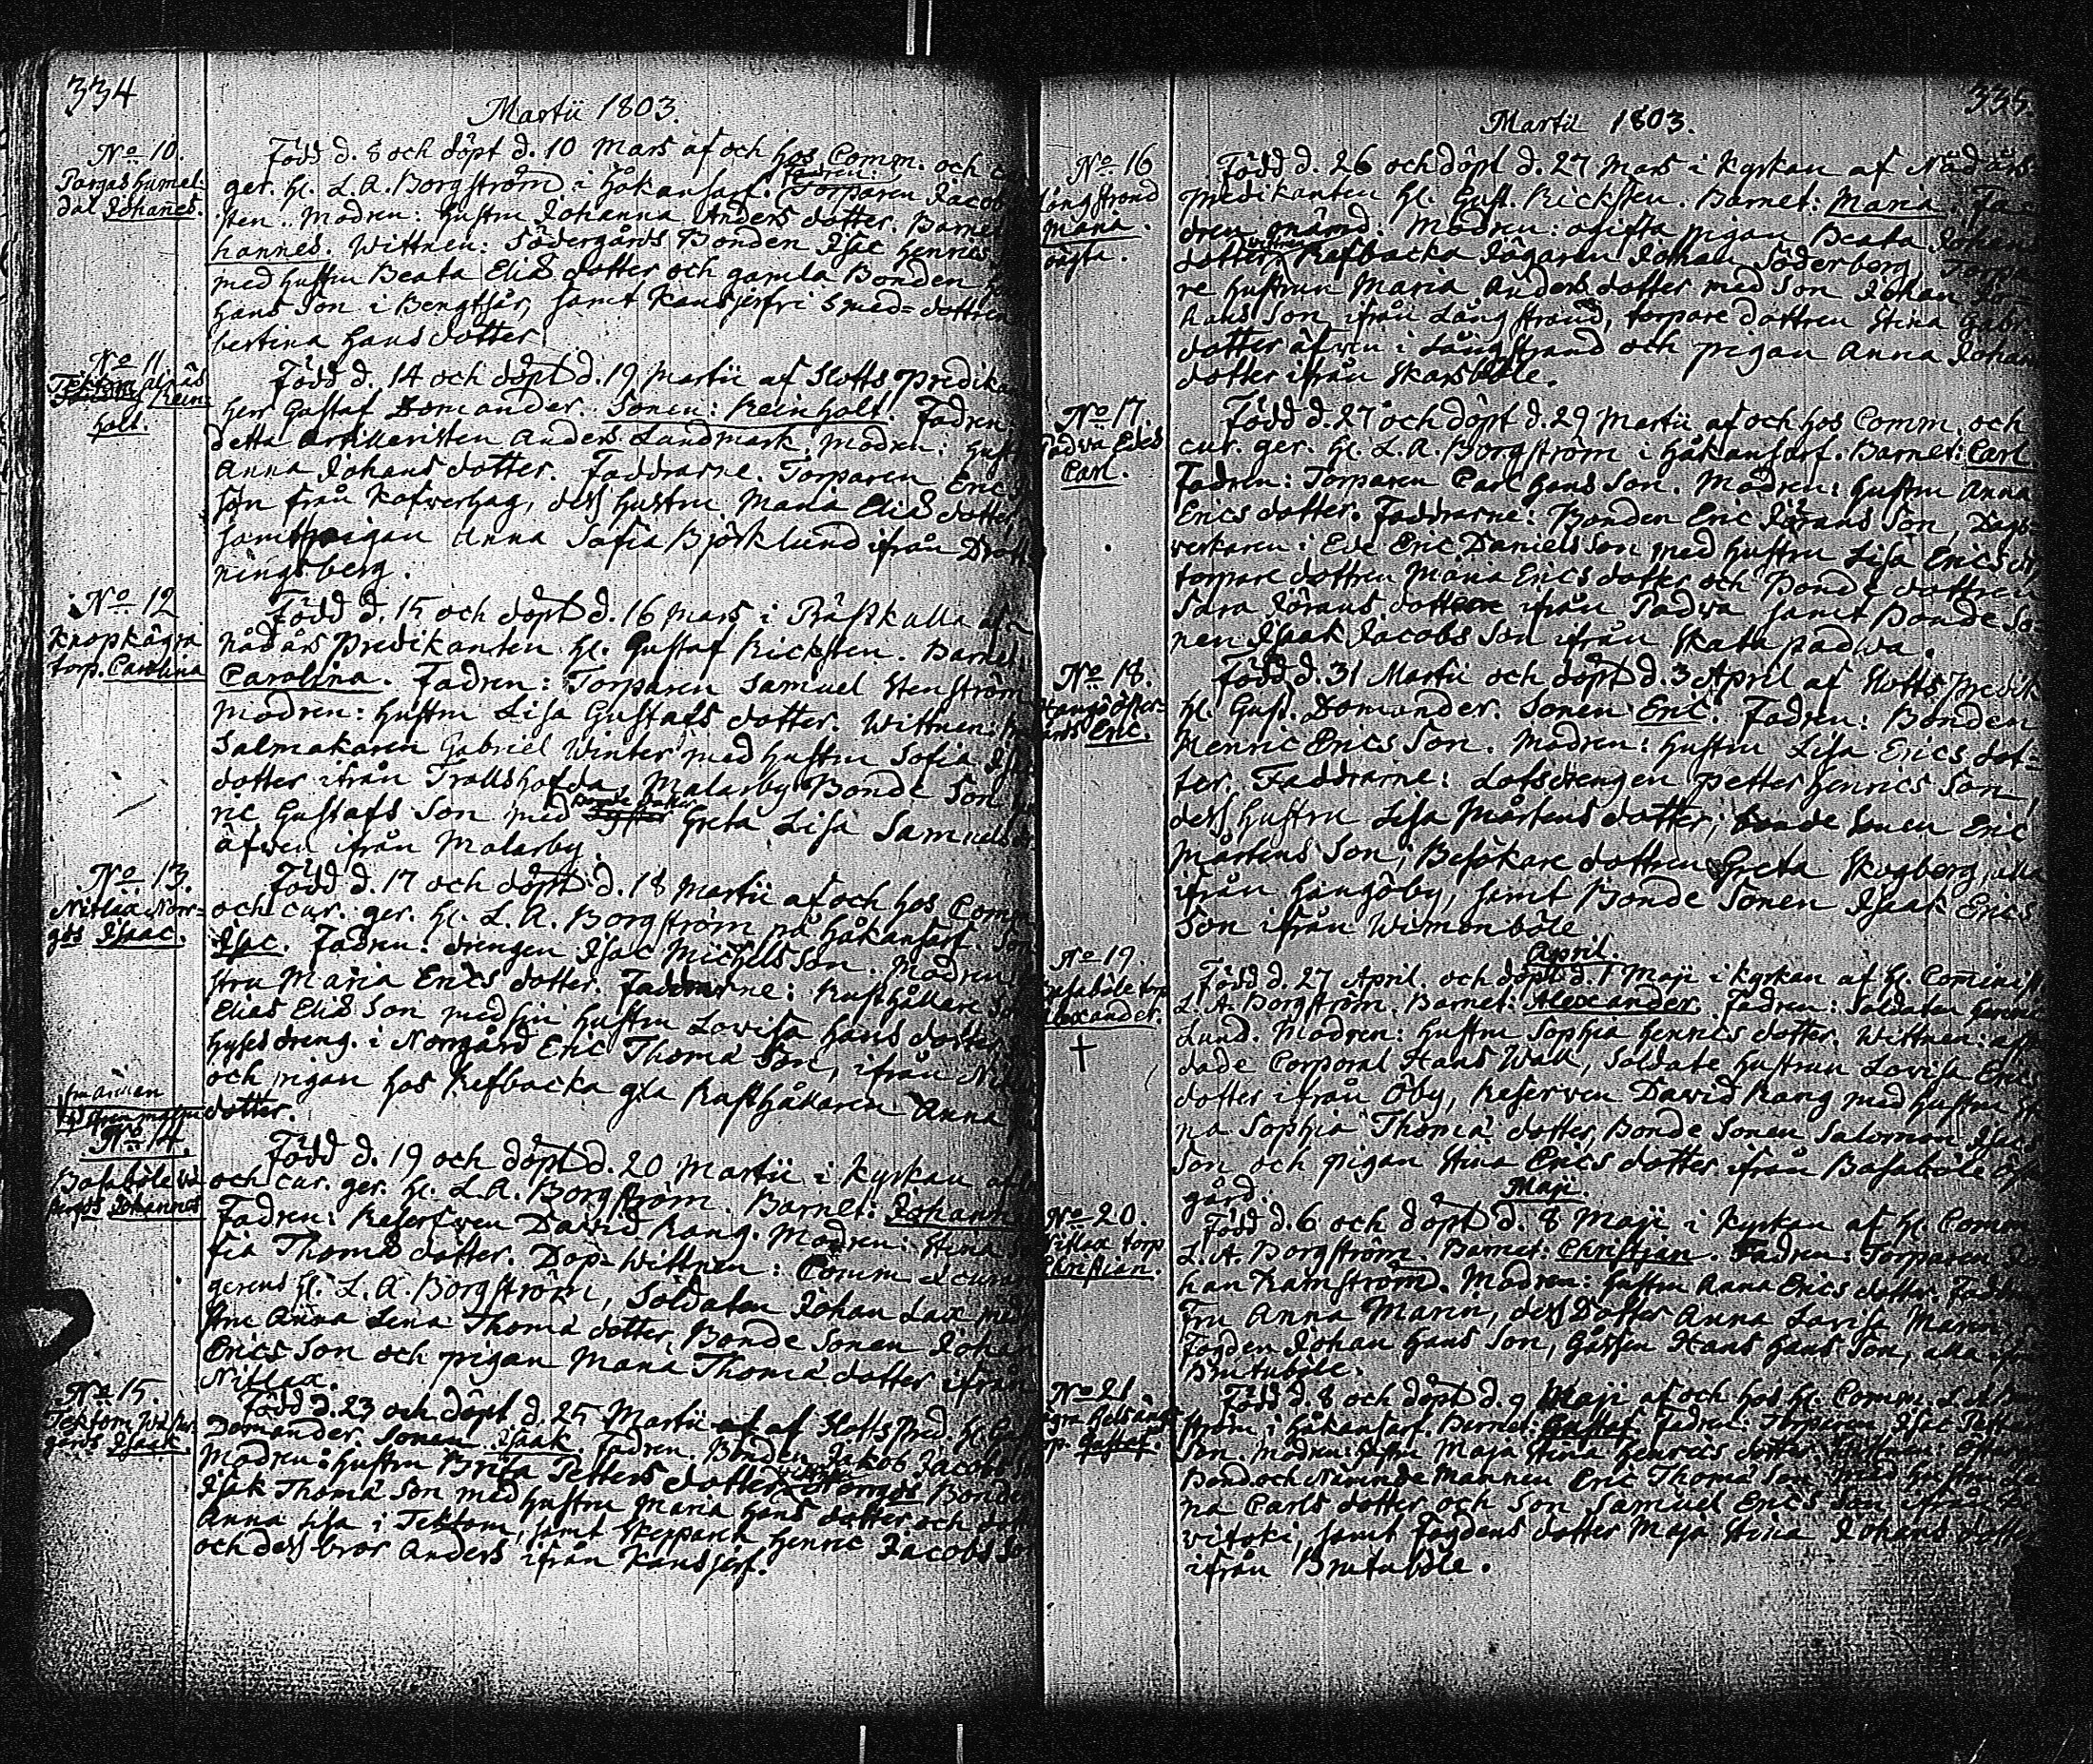 334
Martii 1803.
No 10.
Pargas humel-
dal Johañes.
Född d. 8 och döpt d. 10 Mars af och hos Comm. och
ger. Hl. L. A. Borgström i Håkansarf. Fadren: Torparen Jacob
sten. Modren: Hustru Johanna Anders dotter. Barnet
hannes. Wittnen: Södergårds Bonden Isac Henrics
med hustru Beata Elias dotter och gamla Bonden
Hans Son i Bengtsår, samt Kansjerfvi Smed-dottren
bertina Hans dotter.
No 11
Rein-
holt.
Född d. 14 och döpt d. 19 Martii af Slotts Predika
Herr Gustaf Domander. Sonen: Reinholt. Fadren:
detta Artilleristen Anders Lundmark, Modren: Hust
Anna Johans dotter. Faddrarne. Torparen Erics
son från Kafverhag, dess hustru Maria Elias dotter,
samt pigan Anna Sofia Björklund ifrån Drott
ningsberg.
No 12
Knopkägra
torp. Carolina
Född d. 15 och döpt d. 16 Mars i Prästkulla af
nådårs Predikanten Hl. Gustaf Ricksten. Barnet
Carolina. Fadren: Torparen Samuel Stenström
Modren: Hustru Lisa Gustafs dotter. Wittnen:
Salmakaren Gabriel Winter med hustru Sofia
dotter ifrån Trallshofda, Malarby Bonde Son
ric Gustafs Son med Greta Lisa Samuels
äfven ifrån Malarby.
No 13.
Nitlax Norr-
gds Isaac.
Född d. 17 och döpt d. 18 Martii af och hos Comm
och cur. ger. Hl. L. A. Borgström på Håkansarf. Son
Isac. Fadren: drengen Isac Michels Son. Modren
stru Maria Erics dotter. Faddrarne: Rusthållare
Elias Elias Son med sin hustru Lovisa Hans dotter
hyses dreng. i Norrgård Eric Thomæ Son, ifrån
och pigan hos Refbacka gla Rusthållaren Anna
dotter.
No 14.
Basaböle
Johannes
Född d. 19 och döpt d. 20 Martii i Kyrkan af
och cur. ger. Hl. L. A. Borgström. Barnet: Johann
Fadren: Reserfven David Rang. Modren: Stina
fia Thomæ dotter. Dop-Wittnen: Comm et cura
gerens Hl. L. A. Borgström, Soldaten Johan Lax med
stru Anna Lena Thomæ dotter, Bonde Sonen Johan
Erics Son och pigan Maria Thomæ dotter ifrån
Nitlax.
No 15.
Tecktom
gårds Isaak.
Född d. 23 och döpt d. 25 Martii af Slotts Pred. Hl.
Domander Sonen Isaak. Fadren. Bonden Jakob Jacobs
Modren: hustru Brita Petters dotter Bonde
Isak Thomæ Son med hustru Maria Hans dotter och
Anna Lisa i Tektom, samt Skepparen Henric Jacobs Son
och dess bror Anders ifrån Kansjerf.
335
Martii 1803.
No 16
Långstrand
Maria.
oägta.
Född d. 26 och döpt d. 27 Mars i Kyrkan af Nådårs
Predikanten Hl. Gust. Ricksten. Barnet: Maria. Fa-
dren onämd. Modren: ogifta pigan Beata Johans
dotter. Refbacka Jägaren Johan Söderberg, Torpa-
re hustrun Maria Anders dotter med Son Johan Jo-
hans Son ifrån Långstrand, torpare dottren Stina Gabr
dotter äfven i Långstrand och pigan Anna Johan
dotter ifrån Skarsböle.
No 17
Padva Edes
Carl.
Född d. 27 och döpt d. 29 Martii af och hos Comm. och
cur. ger. Hl. L. A. Borgström i Håkansarf. Barnet: Carl.
Fadren: Torparen Carl Hans Son. Modren: Hustru Anna
Erics dotter. Faddrarne: Bonden Eric Jörans Son, Dags-
verkaren i Ede Eric Daniels Son med hustru Lisa Erics dr
torpare dottren Maria Erics dotter och Bonde dottren
Sara Jörans dotter ifrån Padva samt Bonde So-
nen Isaak Jacobs Son ifrån Skata padva.
No 18.
Hangööster
gårds Eric.
Född d. 31 Martii och döpt d. 3 April af Slotts Predik
Hl. Gust. Domander. Sonen Eric. Fadren: Bonden
Henric Erics Son. Modren: hustru Lisa Erics dot-
ter. Faddrarne: Lotsdrengen Petter Henrics Son,
dess hustru Lisa Mårtens dotter; bonde Sonen Eric
Mårtens Son; Besökare dottren Greta Skogberg, alla
ifrån Hangöby, samt Bonde Sonen Isaak Erics
Son ifrån Wimonböle.
April.
No 19.
Basaböle torp
Alexander.
†
Född d. 27 April. och döpt d. 1 Maji i Kyrkan af Hl. Cominist
L. A. Borgström. Barnet: Alexander. Fadren: Soldaten Henric
Lund. Modren: hustru Sophia Henrics dotter. Wittnen:
dade Corporal Hans Wall, Soldate hustrun Lovisa Erics
dotter ifrån Öby, Reserven David Rang med hustru
na Sophia Thomæ dotter, Bonde Sonen Salomon Isacs
Son och pigan Stina Erics dotter ifrån Basaböle
gård.
Maji.
No 20.
Nitlax torp
Christian.
Född d. 6 och döpt d. 8 Maji i Kyrkan af Hl Comm
L. A. Borgström. Barnet: Christian. Fadren: Torparen Jo
han Ramström. Modren: hustru Anna Erics dotter.
Fru Anna Marin, dess Dotter Anna Lovisa Marin,
Fogden Johan Hans Son, Gossen Hans Hans Son, alla ifrån
Brutuböle.
No 21.
Gustaf.
Född d. 8 och döpt d. 9 Maji af och hos Hl. Comm. L. A. Borg
ström i Håkansarf. Barnet: Gustaf. Fadren: Torparen Isac
Son. Modren: Maja Stina Henrics dotter. Wittnen:
Bond och Nämnde Mannen Eric Thomæ Son med hustru
na Carls dotter och Son Samuel Erics Son ifrån
vitoki, samt Fogdens dotter Maja Stina Johans dotter
ifrån Brutuböle.